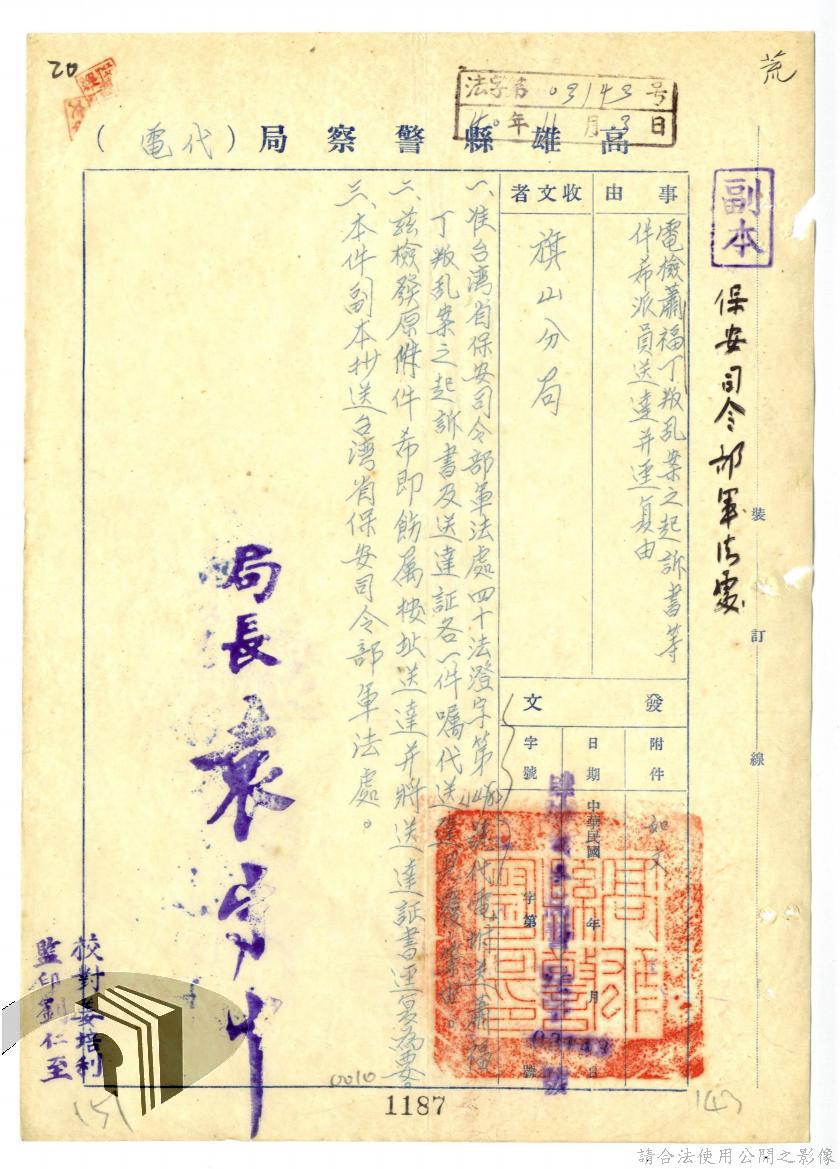 20
荒
法字第03143号
40年11月3日
高雄縣警察局（代電）
副本
保安司令部軍法處
裝
訂
線
事由
電檢蕭福丁叛乱案之起訴書等
件希派員送達并逕复由
收文者
旗山分局
發文
附件
如文
日期
中華民國 年 月 日
字號
字第 號
一、准台湾省保安司令部軍法處四十法澄字第 號代電附送蕭福
丁叛乱案之起訴書及送達証各一件嘱代送達見復等由。
二、茲檢發原附件希即飭属按址送達并將送達証書逕复為要。
三、本件副本抄送台湾省保安司令部軍法處。
局長
校對姜培利
監印劉仁至
0010
1187
151
143
請合法使用公開之影像